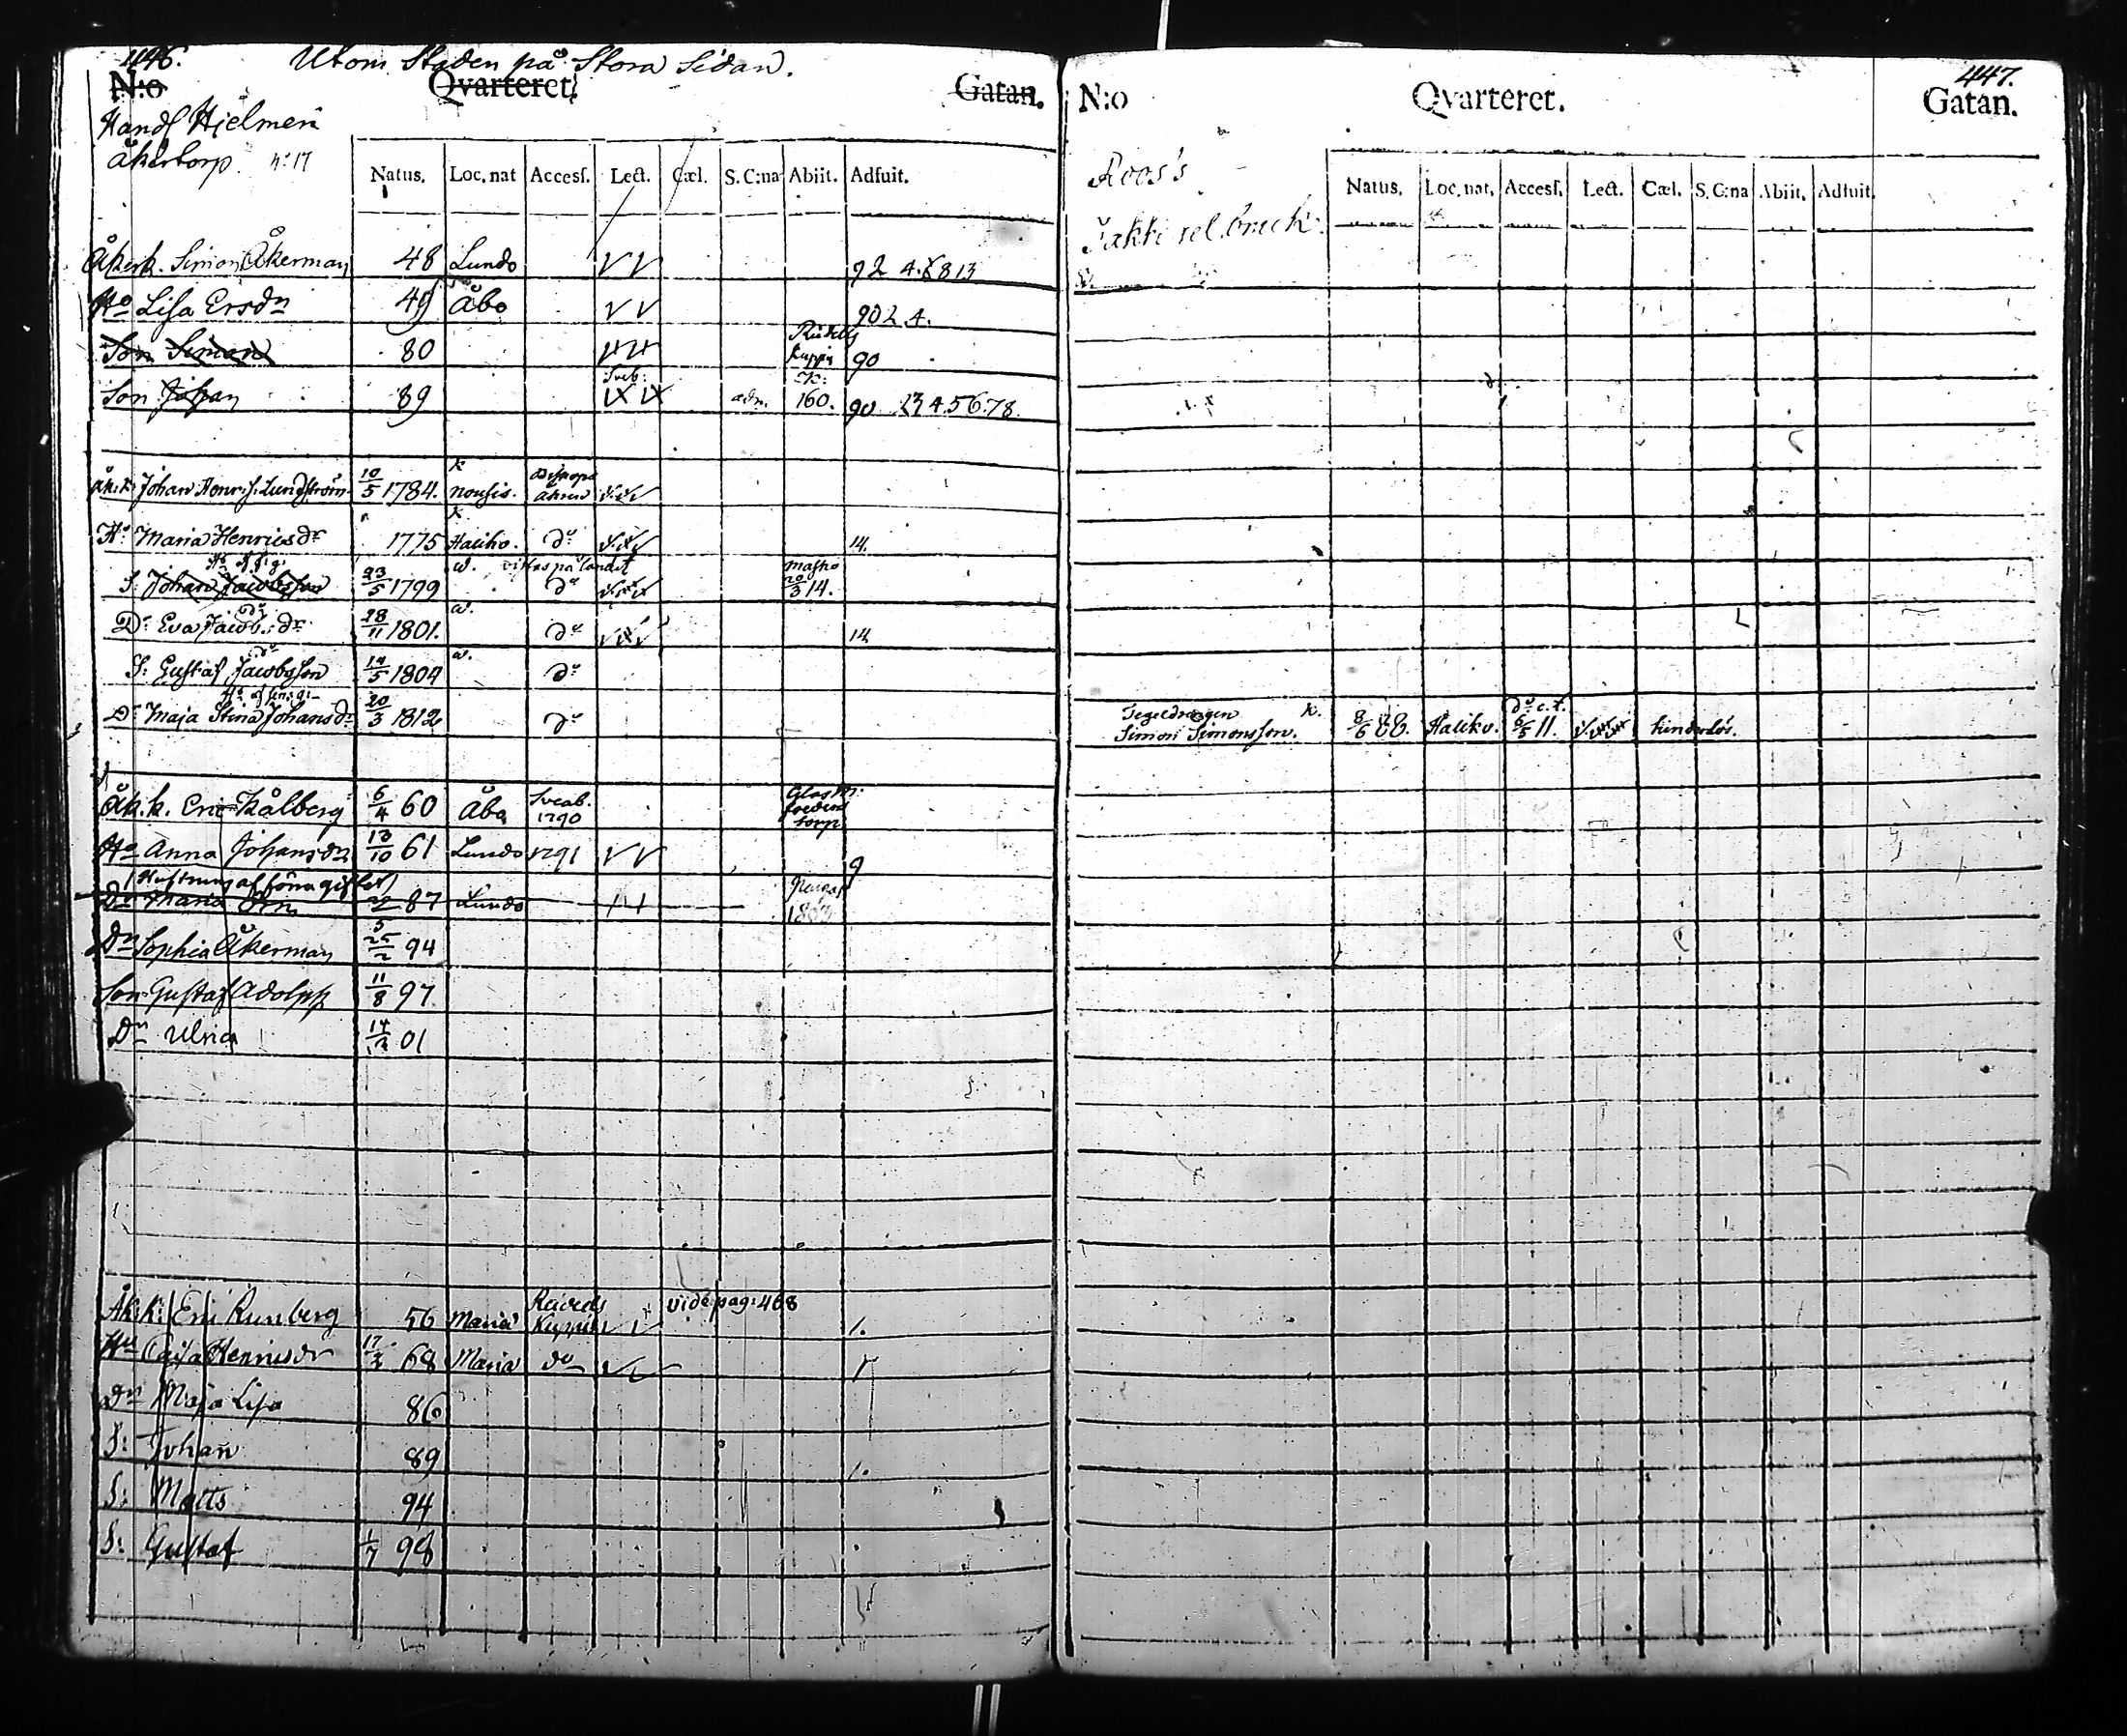 446.
Utom Staden på Stora Sidan.
N:o Qvarteret. Gatan.
Handl Hjelmens
åkertorp n:17
Natus. Loc. nat Access. Lect. Cœl. S. C:na Abiit. Adfuit.
Åkerk. Simon Åkerman 48 Lundo 92 4. 6 8 13
Ho Lisa Ersdn 49 Åbo 90 2 4.
Son Simon 80 90
Son Johan 89 adm. 160. 90 4. 5 6. 7 8.
Åk. k. Johan Henr. s. Lundström 10/5 1784. nousis.
Ho Maria Henricsdr 1775 Haliko. do 14.
S. Johan Jacobsson 23/5 1799 vistas på landet do 20/3 14.
Dr Eva Jacobsdr 28/11 1801. do 14
S: Gustaf Jacobsson 14/5 1804 do
Dr Maja Stina Johansdr 20/3 1812 do
Åk. k. Eric Kålberg 6/4 60 Åbo 1790 torp
Ho Anna Johansdr 13/10 61 Lundo 1791 9
Dr Maria 87 Lundo
Dn Sophia Åkerman 25/2 94
Son Gustaf Adolph 11/8 97
Dn Ulrica 14/12 01
Åk: k: Eric Runberg 56 Maria vide pag: 468 1.
Hu Caisa Henricsdr 17/3 68 Maria do
Dn Maja Lisa 86
S: Johan 89 1.
S: Matts 94
S: Gustaf 1/7 98
447.
N:o Qvarteret. Gatan.
Roos's
Natus. Loc. nat. Access. Lect. Cœl. S. C:na Abiit. Adfuit.
Simon Simonsson. 8/6 88. Haliko. 6/5 11. hinderlös.